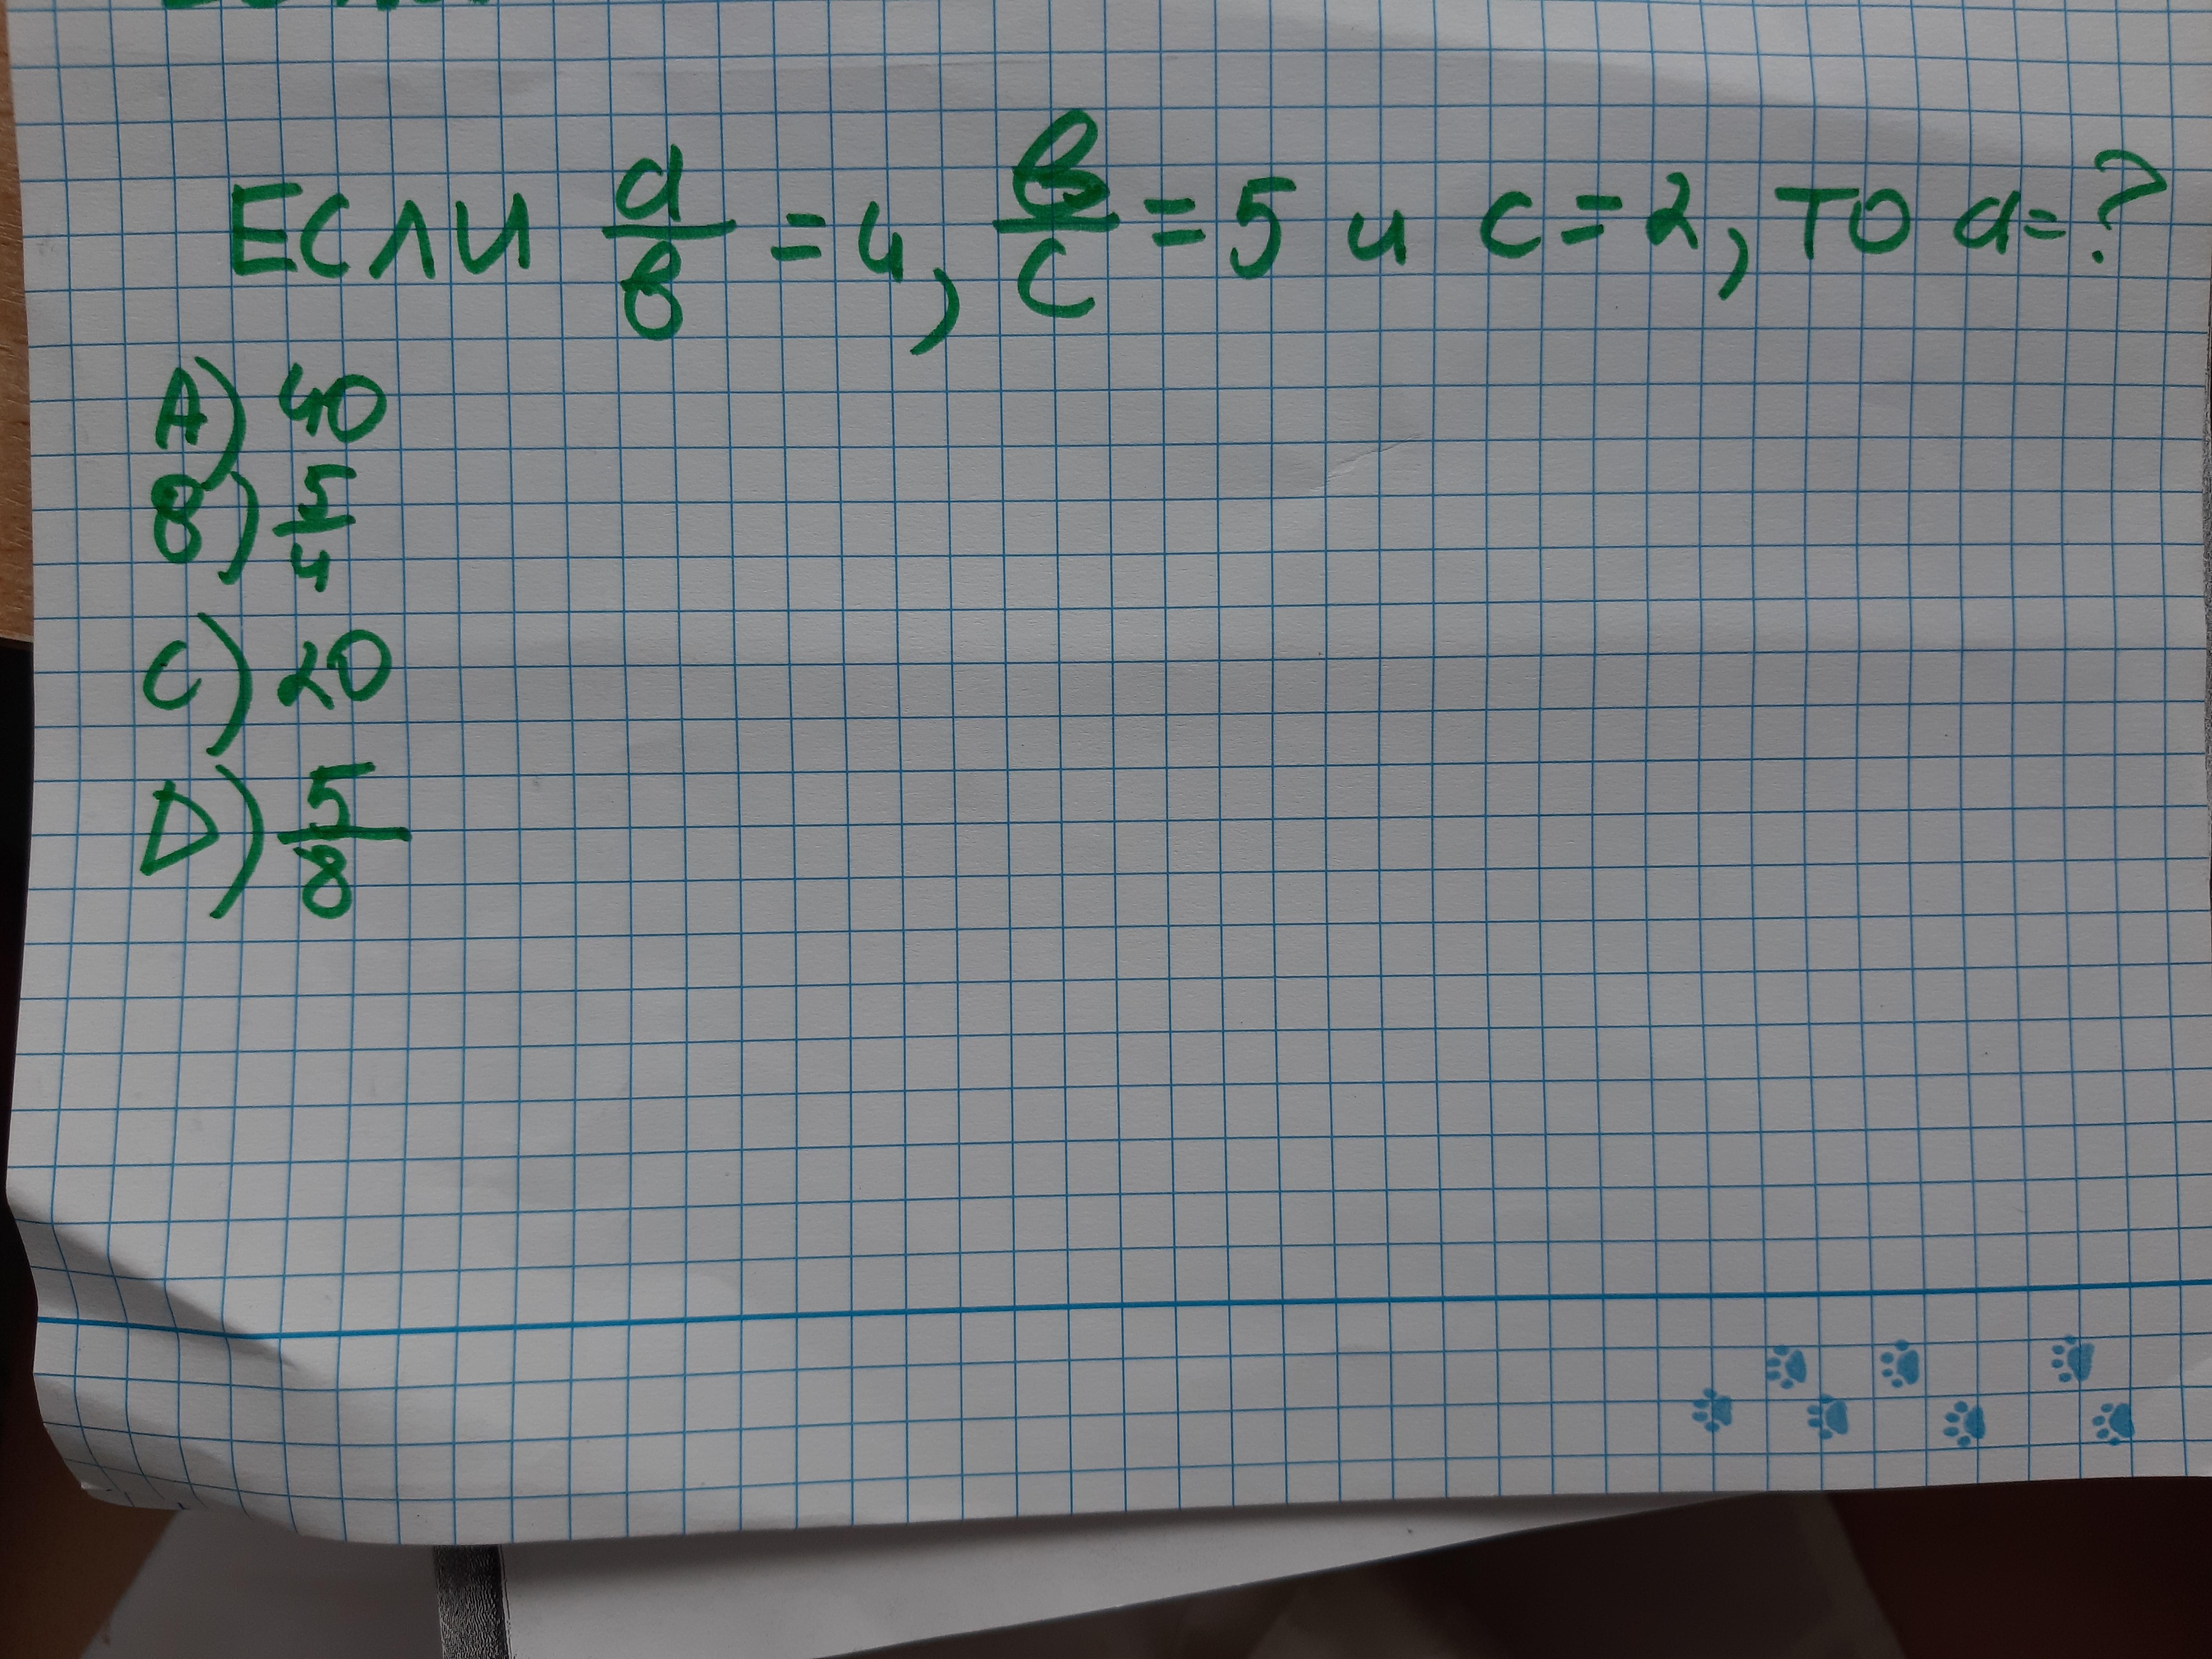 Если a/в = 4, в/c = 5 и c = 2, то a = ?
A) 40
B) 5/4
C) 20
D) 5/8